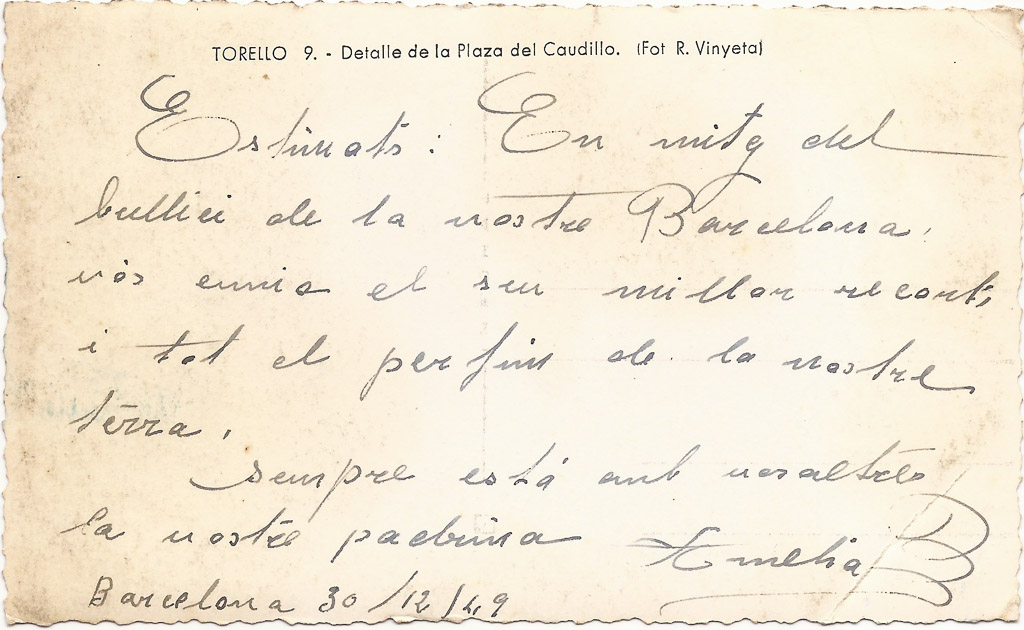 TORELLO 9. - Detalle de la Plaza del Caudillo. (Fot R. Vinyeta)
Estimats: En mitg del
bullici de la nostre Barcelona,
vos envio el seu millor recort,
i tot el perfum de la nostre
tèrra.
Sempre está amb vosaltres
la nostre padrina Amelia B
Barcelona 30/12/49